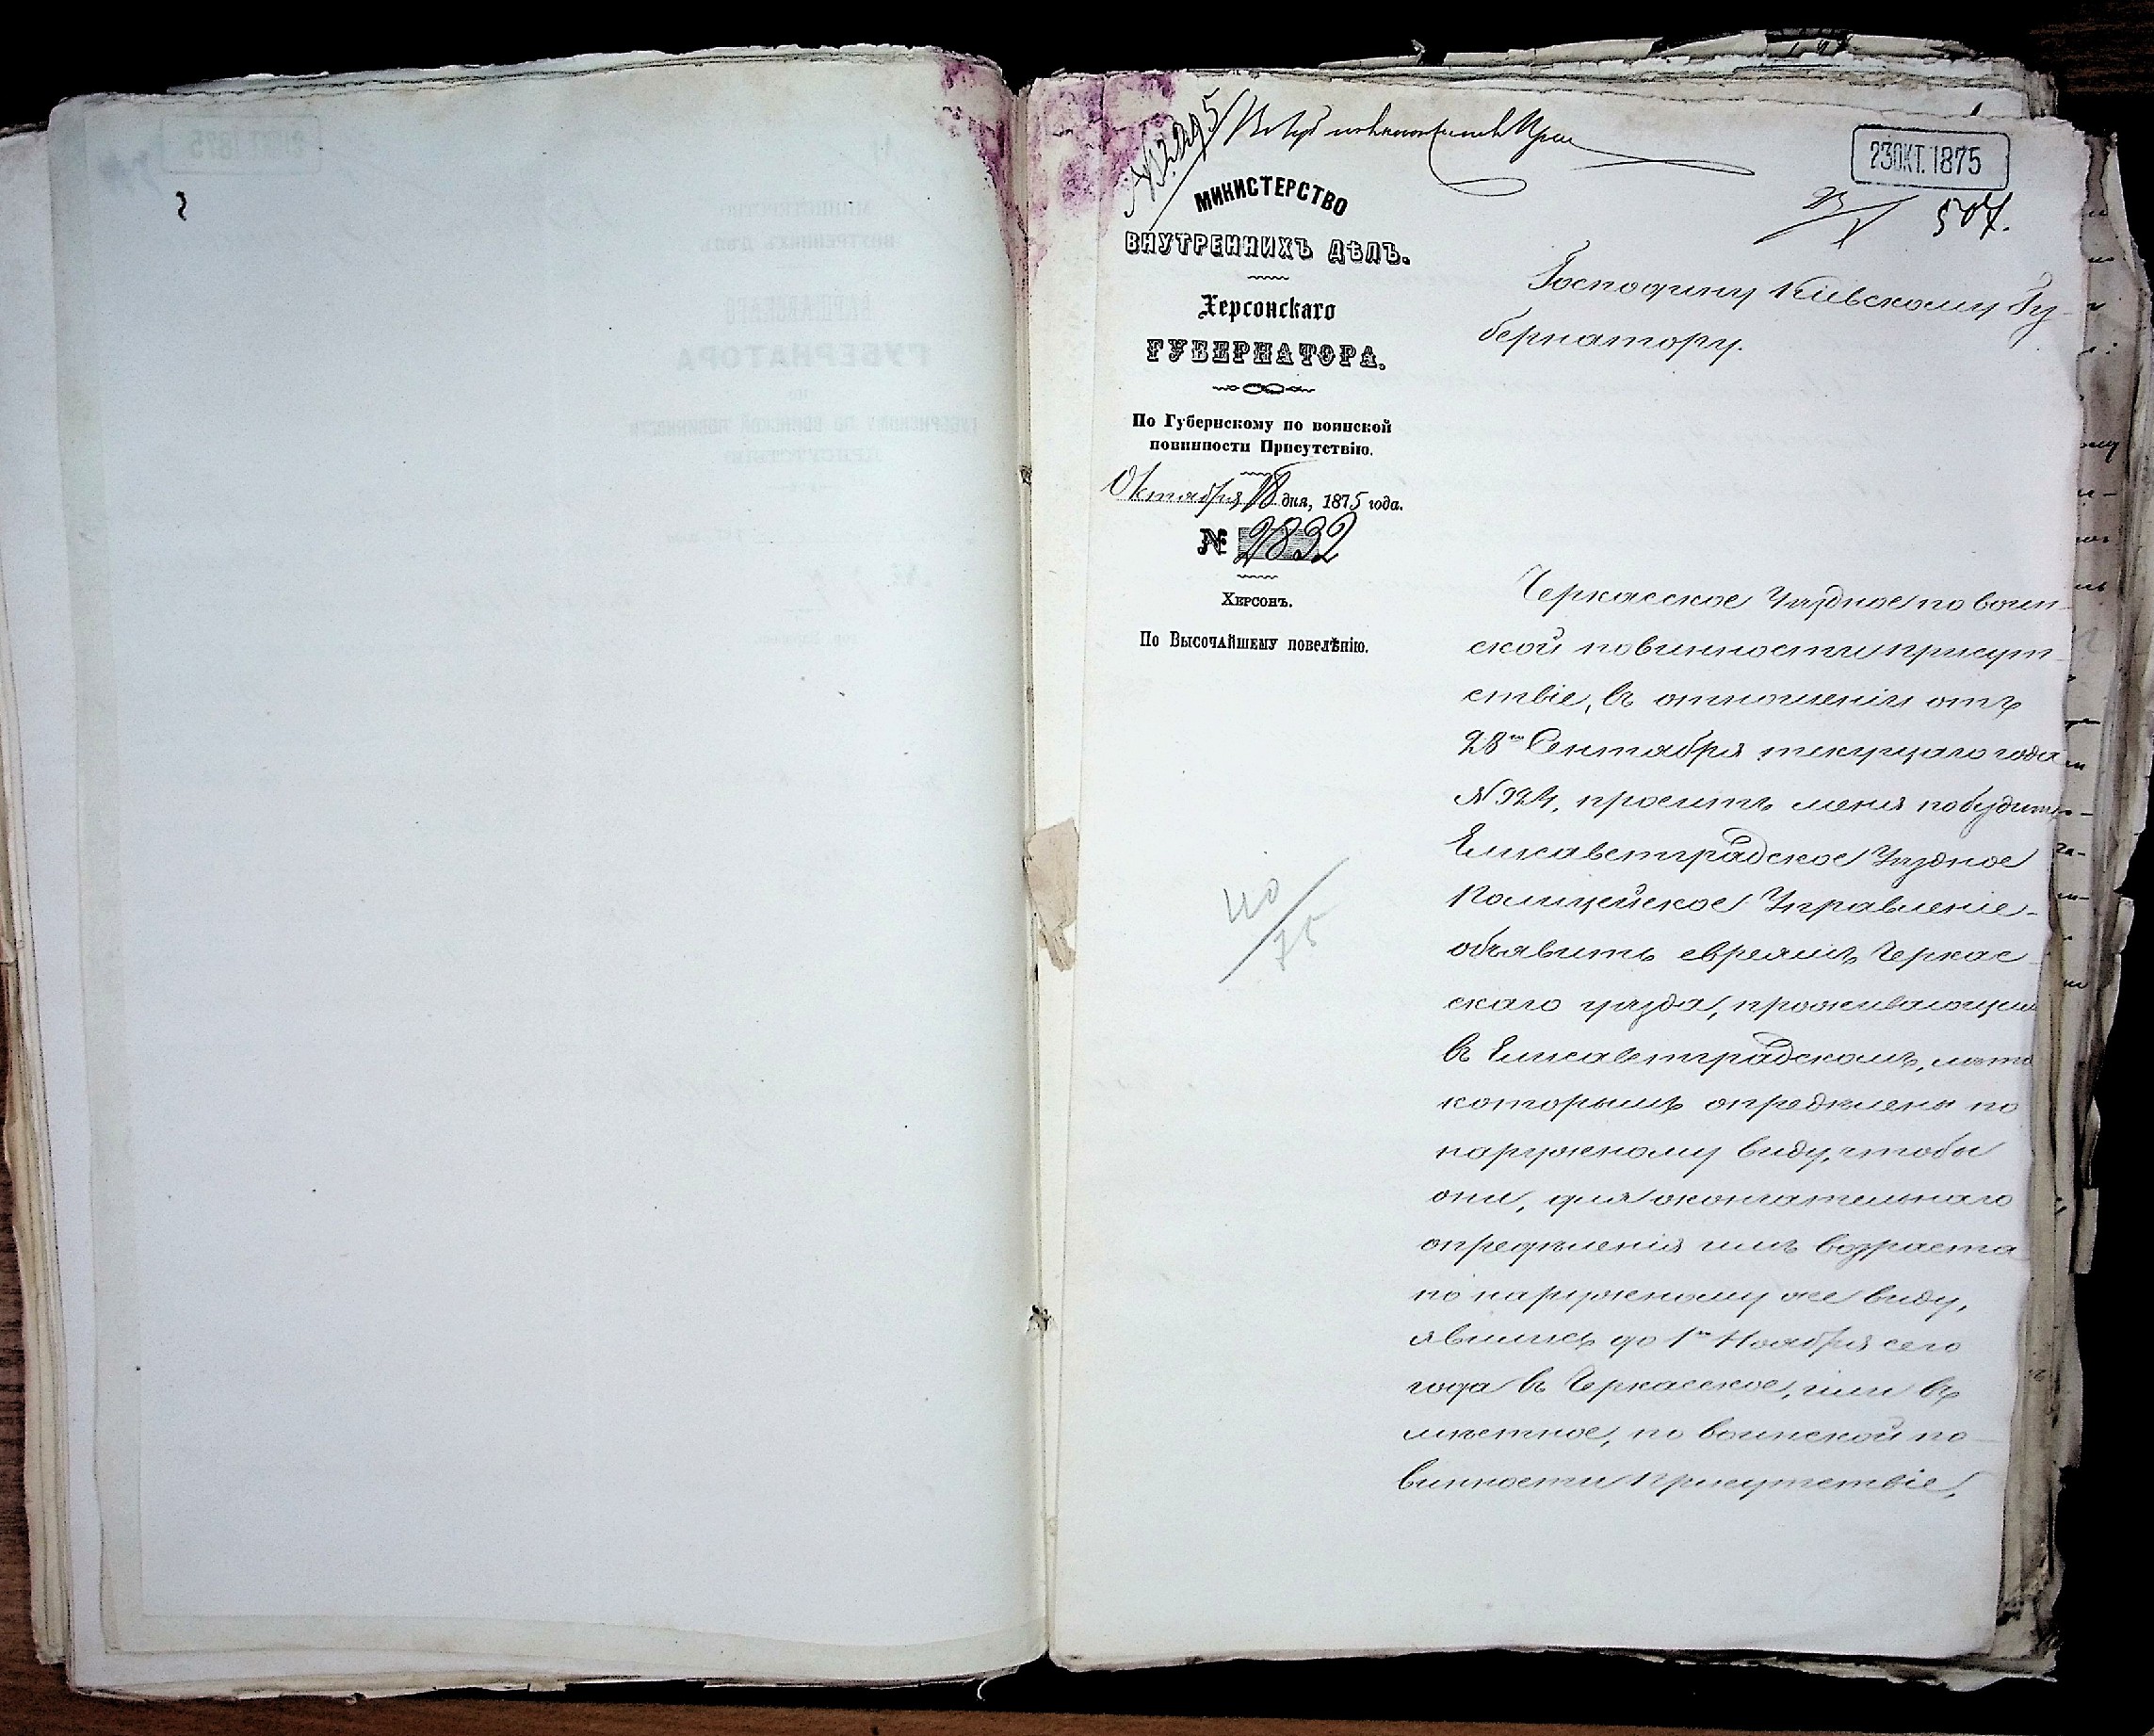 23 ОКТ. 1875
507.
МИНИСТЕРСТВО
ВНУТРЕННИХЪ ДѢЛЪ.
Херсонскаго
ГУБЕРНАТОРА.
По Губернскому по воинской
повинности Присутствію.
Октября 18 дня, 1875 года.
№ 2832
Херсонъ.
По Высочайшему повелѣнію.
40/75
Господину Кіевскому Гу-
бернатору.
Черкасское Уѣздное по воин-
ской повинности присут-
ствіе, въ отношеніи отъ
28го Сентября текущаго года
№ 924, проситъ меня побудить
Елисаветградское Уѣздное
Полицейское Управленіе
объявить евреямъ Черкас-
скаго уѣзда, проживающим
въ Елисаветградскомъ, лѣта
которымъ опредѣлены по
наружному виду, чтобы
они, для окончательнаго
опредѣленія имъ возраста
по наружному же виду,
явились до 1го Ноября сего
года въ Черкасское, или въ
мѣстное, по воинской по-
винности Присутствіе,